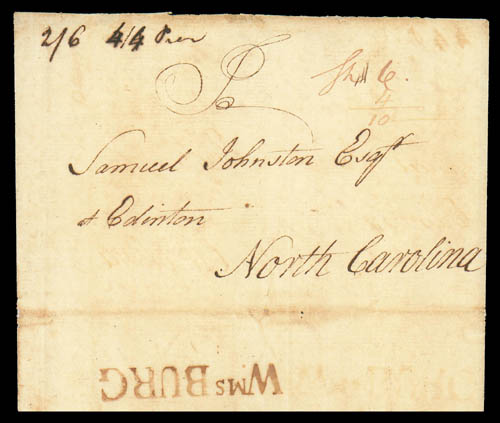 2/6 4/4
6
4
10
Samuel Johnston Esqr
at Edinton
North Carolina
WMS BURG